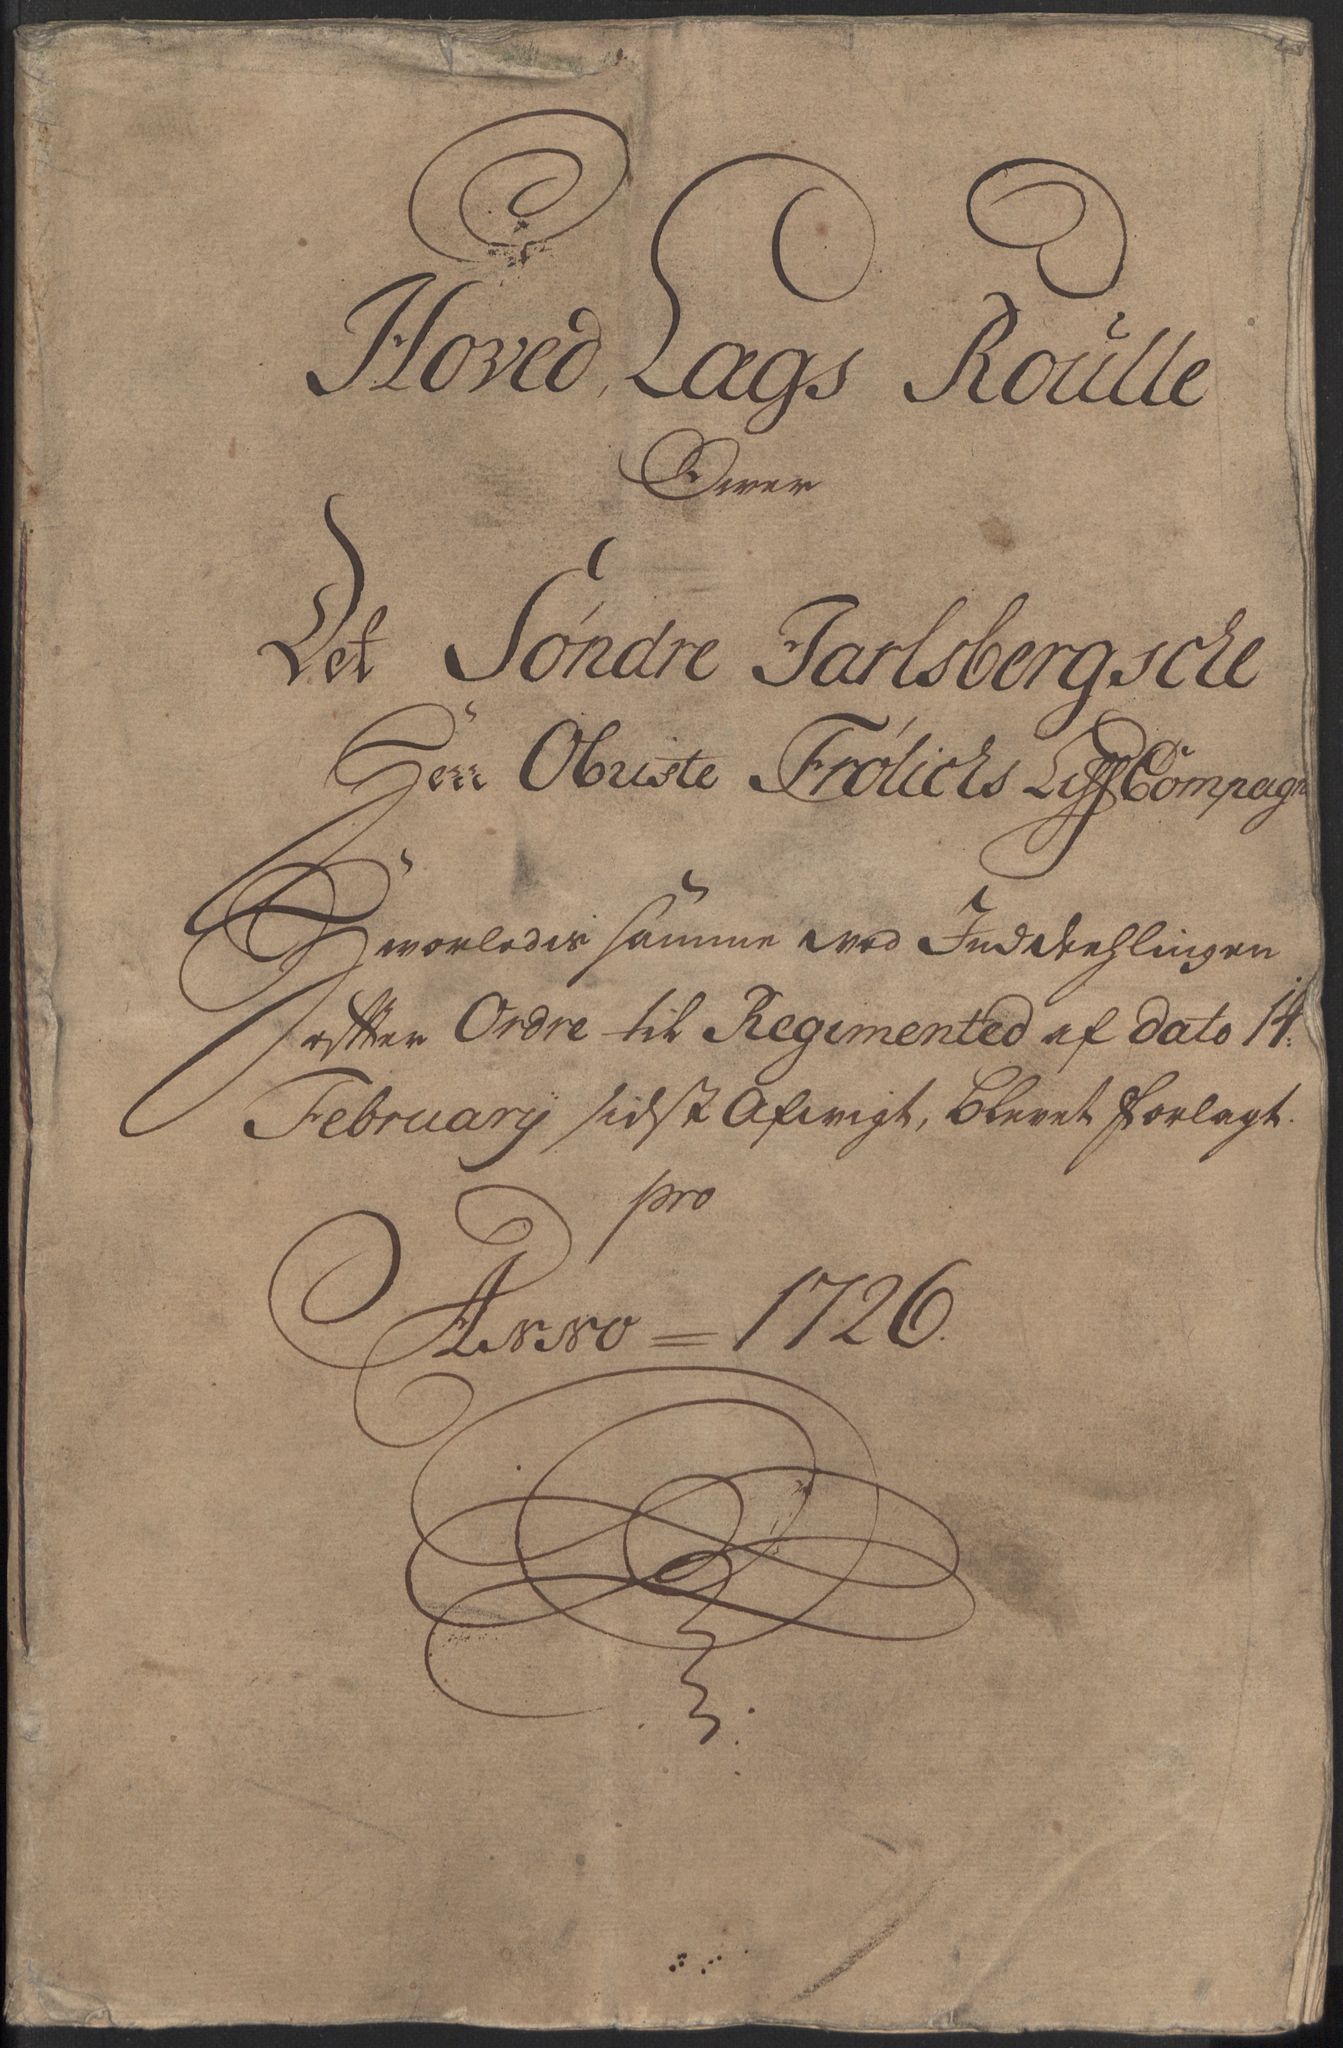 Hoved Lags Roulle
Over
Det Söndre Jarlsbergsche
Herr Obriste Frölichs Liff Compagn
Hvorledis samme ved Inddeehlingen
effter Ordre till Regimented af dato 14:
February sidst Afvigt, bleret forlagt.
pro
Anno = 1726.